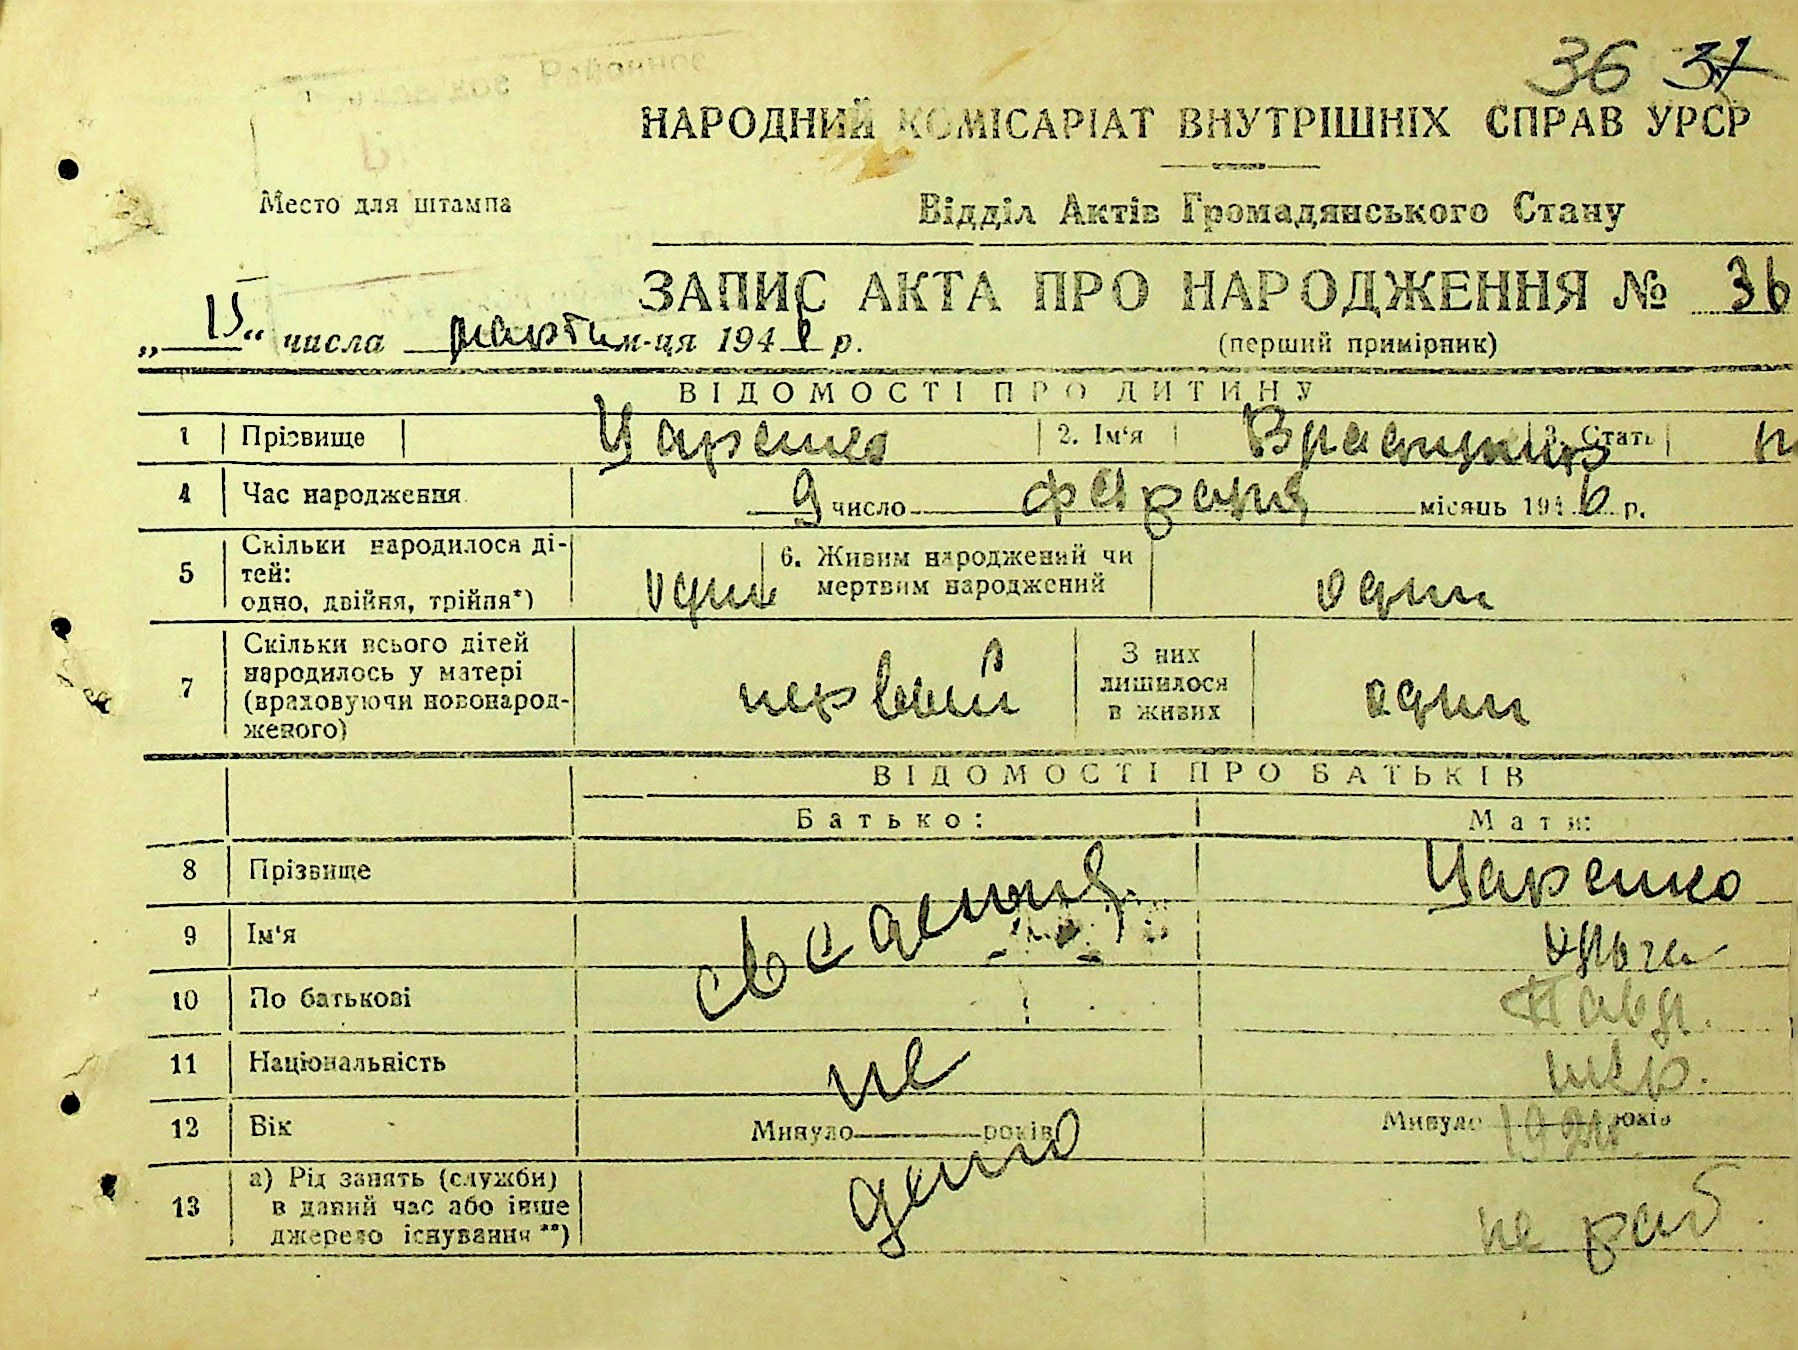 36 37
НАРОДНИЙ КОМІСАРІАТ ВНУТРІШНІХ СПРАВ УРСР
Место для штампа
Відділ Актів Громадянського Стану
ЗАПИС АКТА ПРО НАРОДЖЕННЯ № 36
„15“ числа марта м-ця 1946 р.
(перший примірник)
ВІДОМОСТІ ПРО ДИТИНУ
1 Прізвище Царенко 2. Ім'я 3. Стать
4 Час народження 9 число февраля місяць 1946 р.
5 Скільки народилося ді-
тей:
одно, двійня, трійня*) один
6. Живим народжений чи
мертвим народжений один
7 Скільки всього дітей
народилось у матері
(враховуючи новонарод-
женого) первый
З них
лишилося
в живих один
ВІДОМОСТІ ПРО БАТЬКІВ
Батько: Мати:
8 Прізвище Царенко
9 Ім'я Ольга
10 По батькові Павл.
11 Національність укр.
12 Вік Минуло років Минуло років
13 а) Рід занять (служби)
в даний час або інше
джерело існування **) не раб.
сведения
не
дано